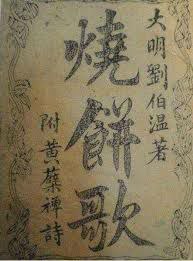 大明劉伯温著
燒餅歌
附黄蘗禪詩